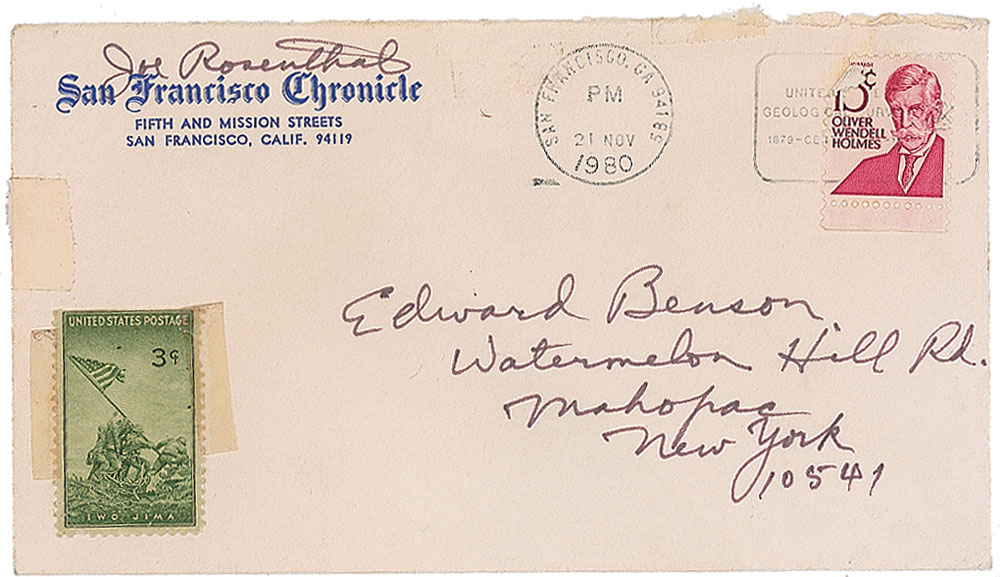 Joe Rosenthal
San Francisco Chronicle
FIFTH AND MISSION STREETS
SAN FRANCISCO, CALIF. 94119
SAN FRANCISCO, CA 94188
PM
21 NOV
1980
UNITED
GEOLOG
1879-CE
15¢
OLIVER
WENDELL
HOLMES
UNITED STATES POSTAGE
3¢
IWO JIMA
Edward Benson
Watermelon Hill Rd.
Mahopac
New York
10541